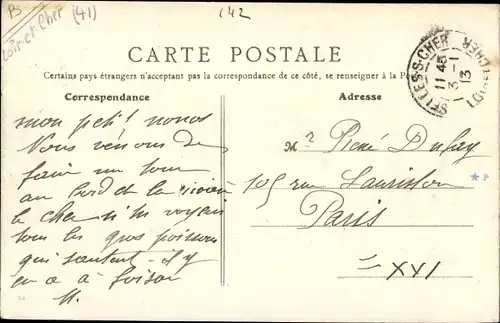 B
Loir et Cher (41)
142
CARTE POSTALE
Certains pays étrangers n'acceptant pas la correspondance de ce côté, se renseigner à la Po
Correspondance
Adresse
SELLES-S-CHER
11 45
3 -1
13
mon petit nonos
Nous venons de
faire un tour
au bord de la rivière
le cher si tu voyais
tous les gros poissons
qui sautent - il y
en a à foison
M.
Mr Pierre Dufay
105 rue Lauriston
Paris
= XVI